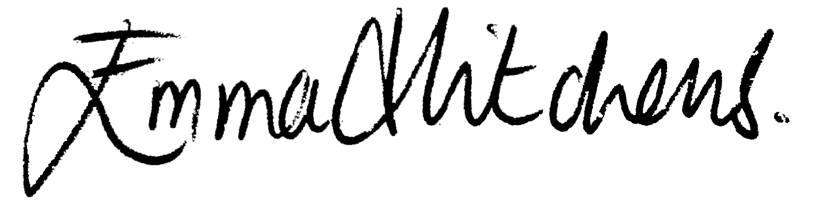 Emma Hitchens.